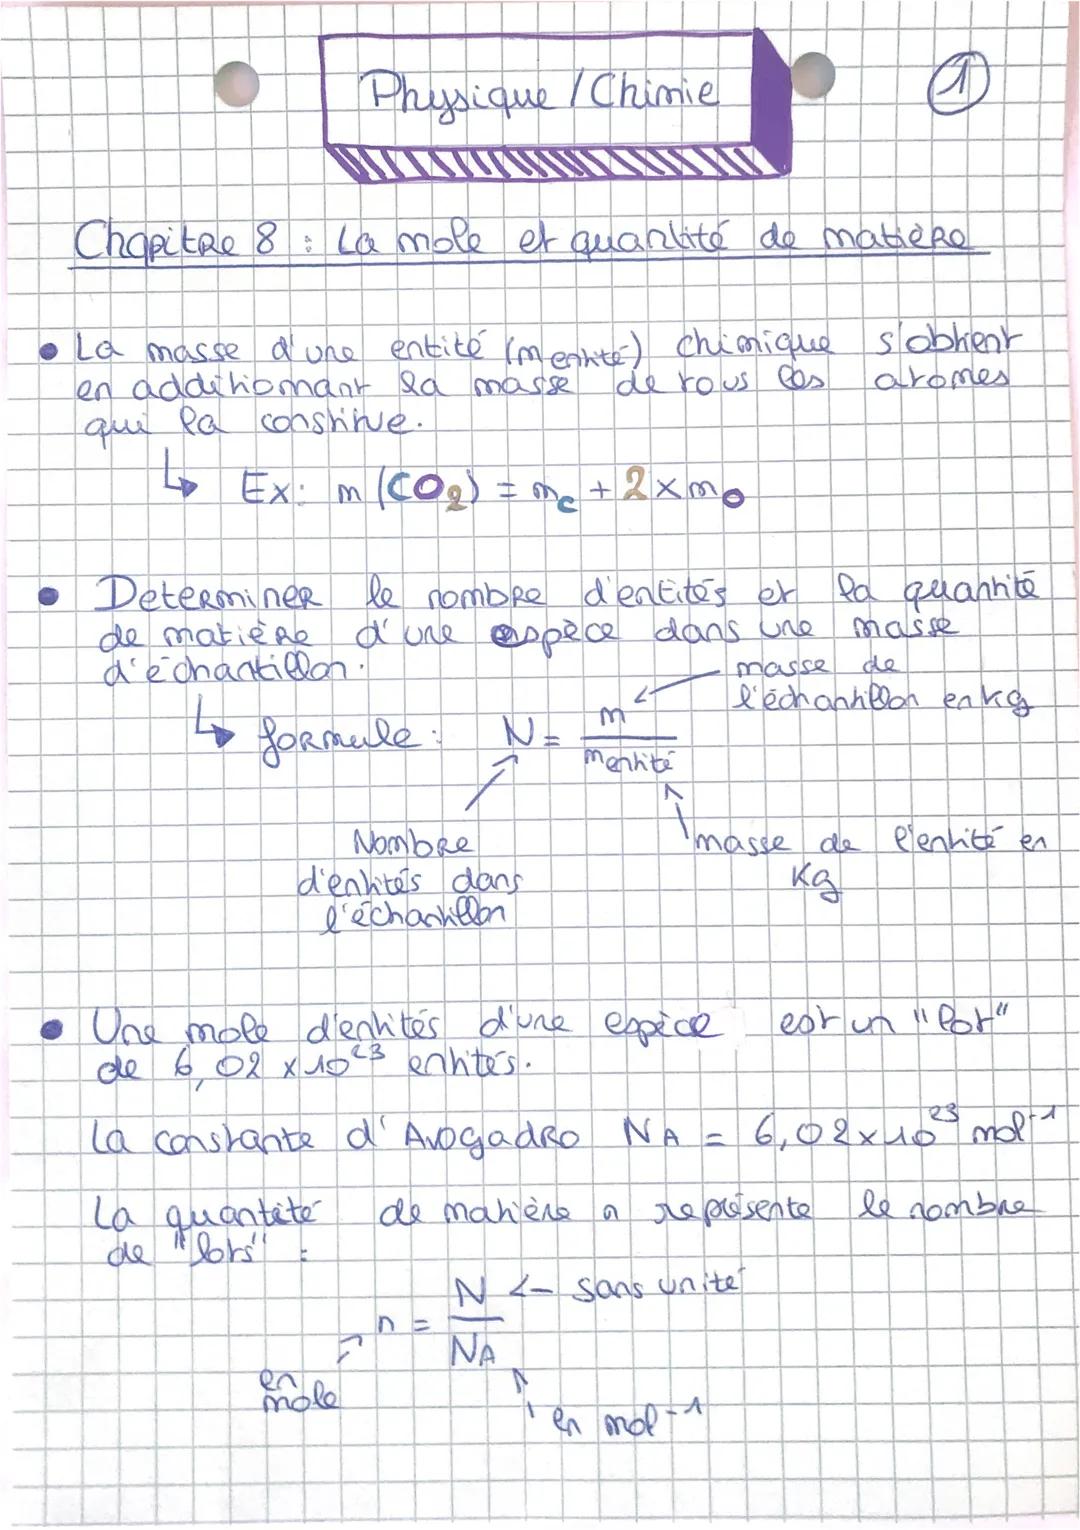 Physique / Chimie
1
Chapitre 8 : La mole et quantité de matière
• La masse d'une entité (m entité) chimique s'obtient
en additionnant la masse de tous les atomes
qui la constitue.
↳ Ex: m (CO₂) = mc + 2 x mo
• Determiner le nombre d'entités et la quantité
de matière d'une espèce dans une masse
d'échantillon.
masse de
l'échantillon en kg
↳ formule : N = m / mentité
Nombre
d'entités dans
l'échantillon
masse de l'entité en
Kg
• Une mole d'entités d'une espèce est un "lot"
de 6,02 x 10²³ entités.
La constante d'Avogadro NA = 6,02 x 10²³ mol⁻¹
La quantité de matière n représente le nombre
de "lots" :
n = N / NA
<- sans unité
en
mole
en mol⁻¹